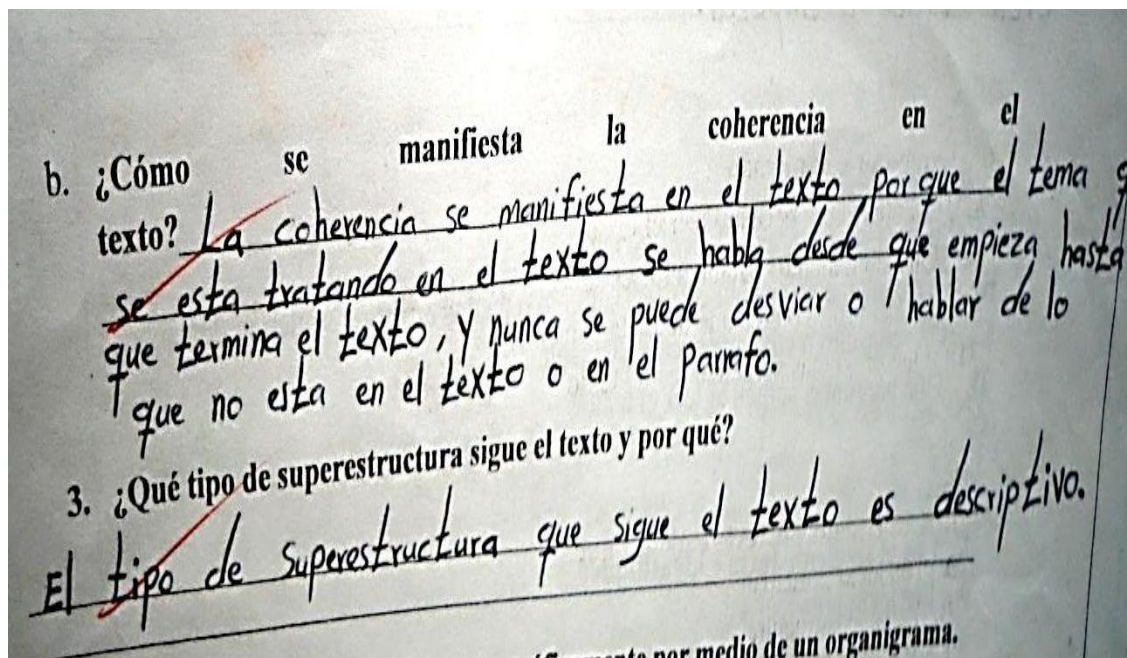 b. ¿Cómo se manifiesta la coherencia en el
texto? La coherencia se manifiesta en el texto, porque el tema q
se esta tratando en el texto se habla desde que empieza hasta
que termina el texto, y nunca se puede desviar o hablar de lo
que no esta en el texto o en el parrafo.
3. ¿Qué tipo de superestructura sigue el texto y por qué?
El tipo de superestructura que sigue el texto es descriptivo.
por medio de un organigrama.